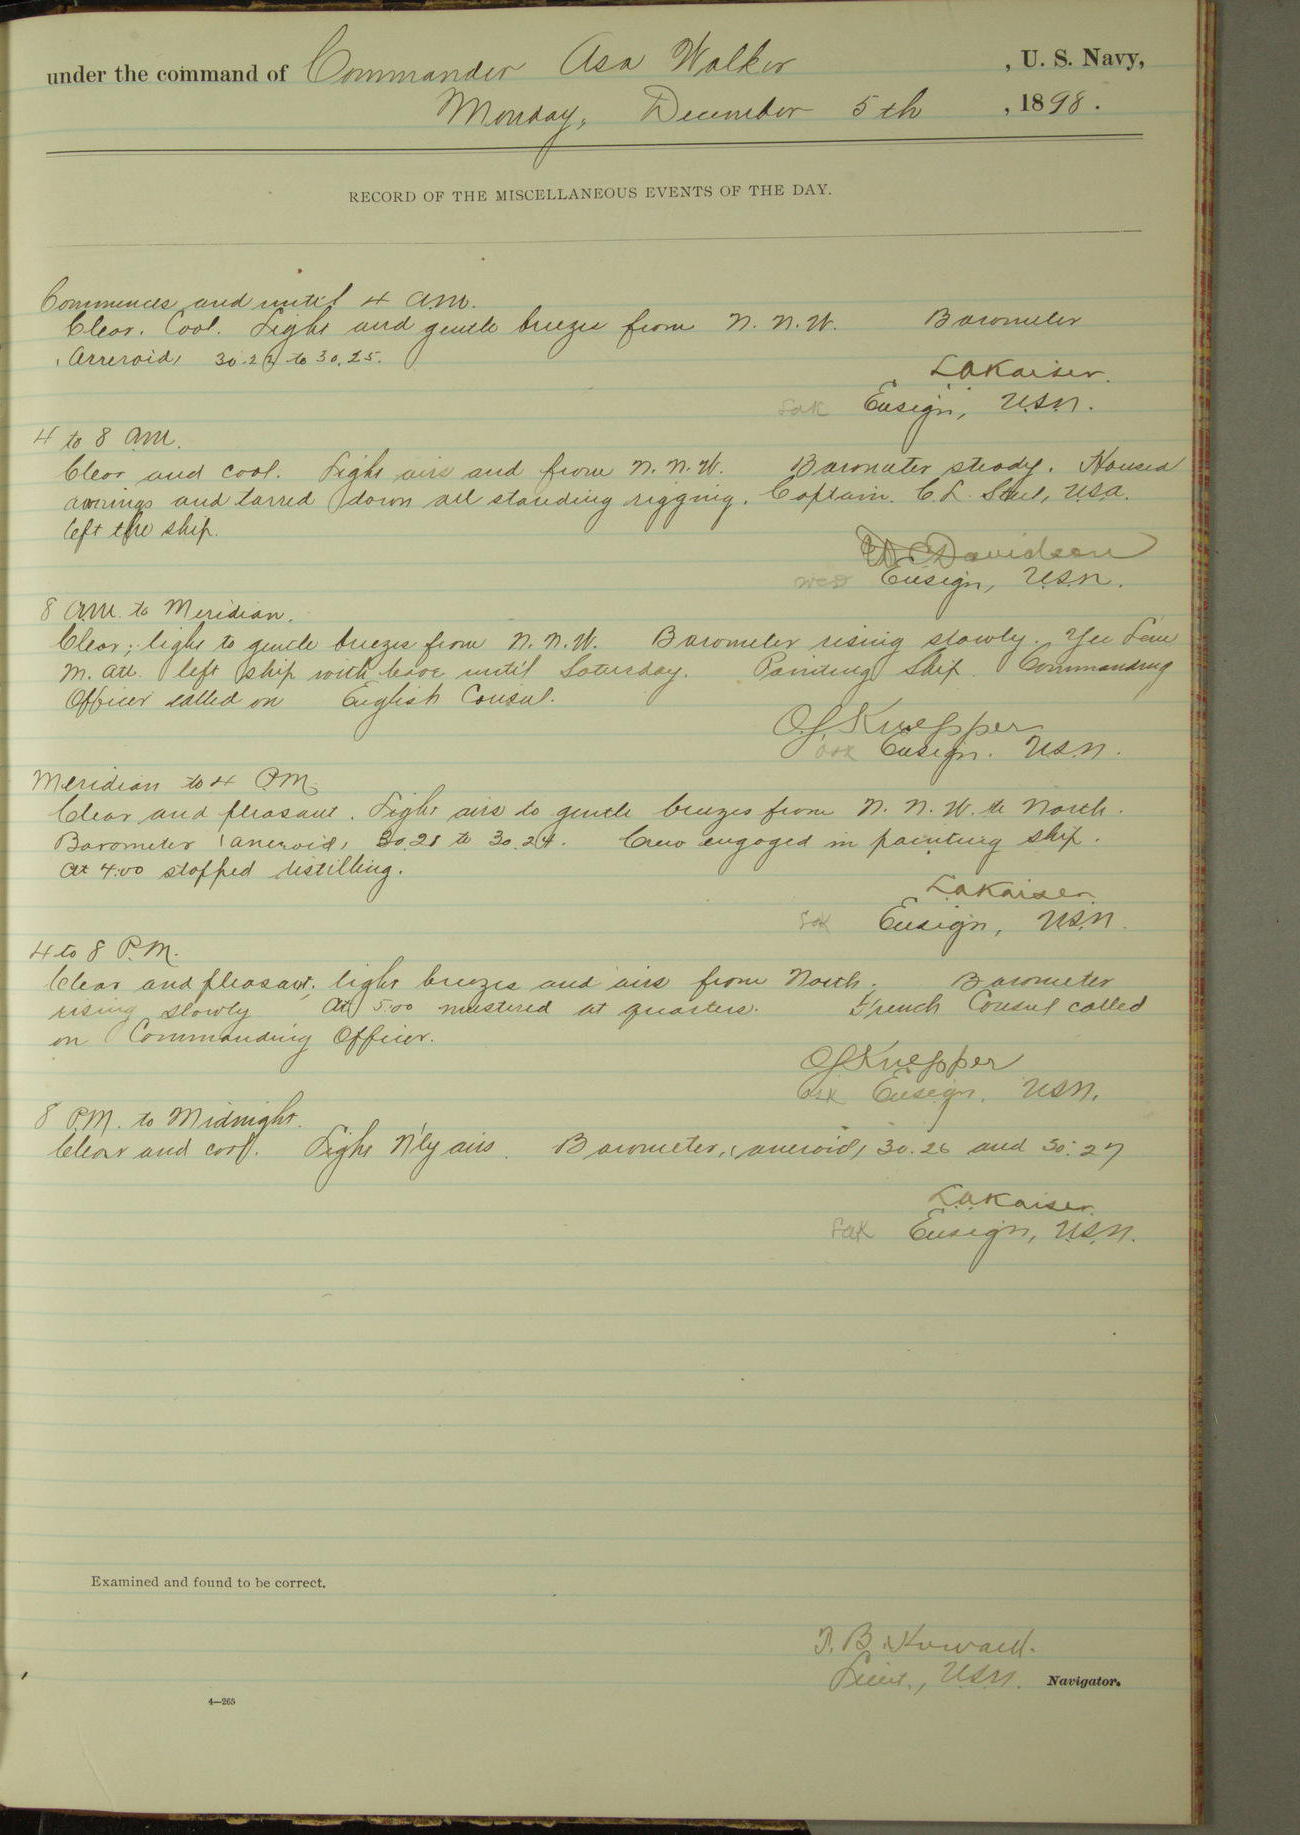 under the command of Commander Asa Walker, U. S. Navy,
Monday, December 5th, 1898.
RECORD OF THE MISCELLANEOUS EVENTS OF THE DAY.
Commences and until 4 a.m.
Clear. Cool. Light and gentle breezes from N. N. W. Barometer
(Arreroid) 30.22 to 30.25.
LAKaiser.
LAK Ensign, U.S.N.
4 to 8 a.m.
Clear and cool. Light airs and from N. N. W. Barometer steady. Housed
awnings and tarred down all standing rigging. Captain C. L. USA.
left the ship.
W C Davidson
WCD Ensign, U.S.N.
8 a.m. to Meridian.
Clear; light to gentle breezes from N. N. W. Barometer rising slowly. Yee
M. Att. left ship with leave until Saturday. Painting ship. Commanding
Officer called on English Consul.
OSKnepper
OSK Ensign. U.S.N.
Meridian to 4 P.M.
Clear and pleasant. Light airs to gentle breezes from N. N. W. to North.
Barometer (aneroid) 30.28 to 30.24. Crew engaged in painting ship.
At 4:00 stopped distilling.
LAKaiser
LAK Ensign, U.S.N.
4 to 8 P.M.
Clear and pleasant; light breezes and airs from North. Barometer
rising slowly At 5:00 mustered at quarters. French Consul called
on Commanding Officer.
OSKnepper
OSK Ensign, U.S.N.
8 P.M. to Midnight.
Clear and cool. Light N'ly airs. Barometer, (aneroid) 30.26 and 30.27
L.A.Kaiser.
LAK Ensign, U.S.N.
Examined and found to be correct.
T. B. Howard.
Lieut., U.S.N. Navigator.
4—265